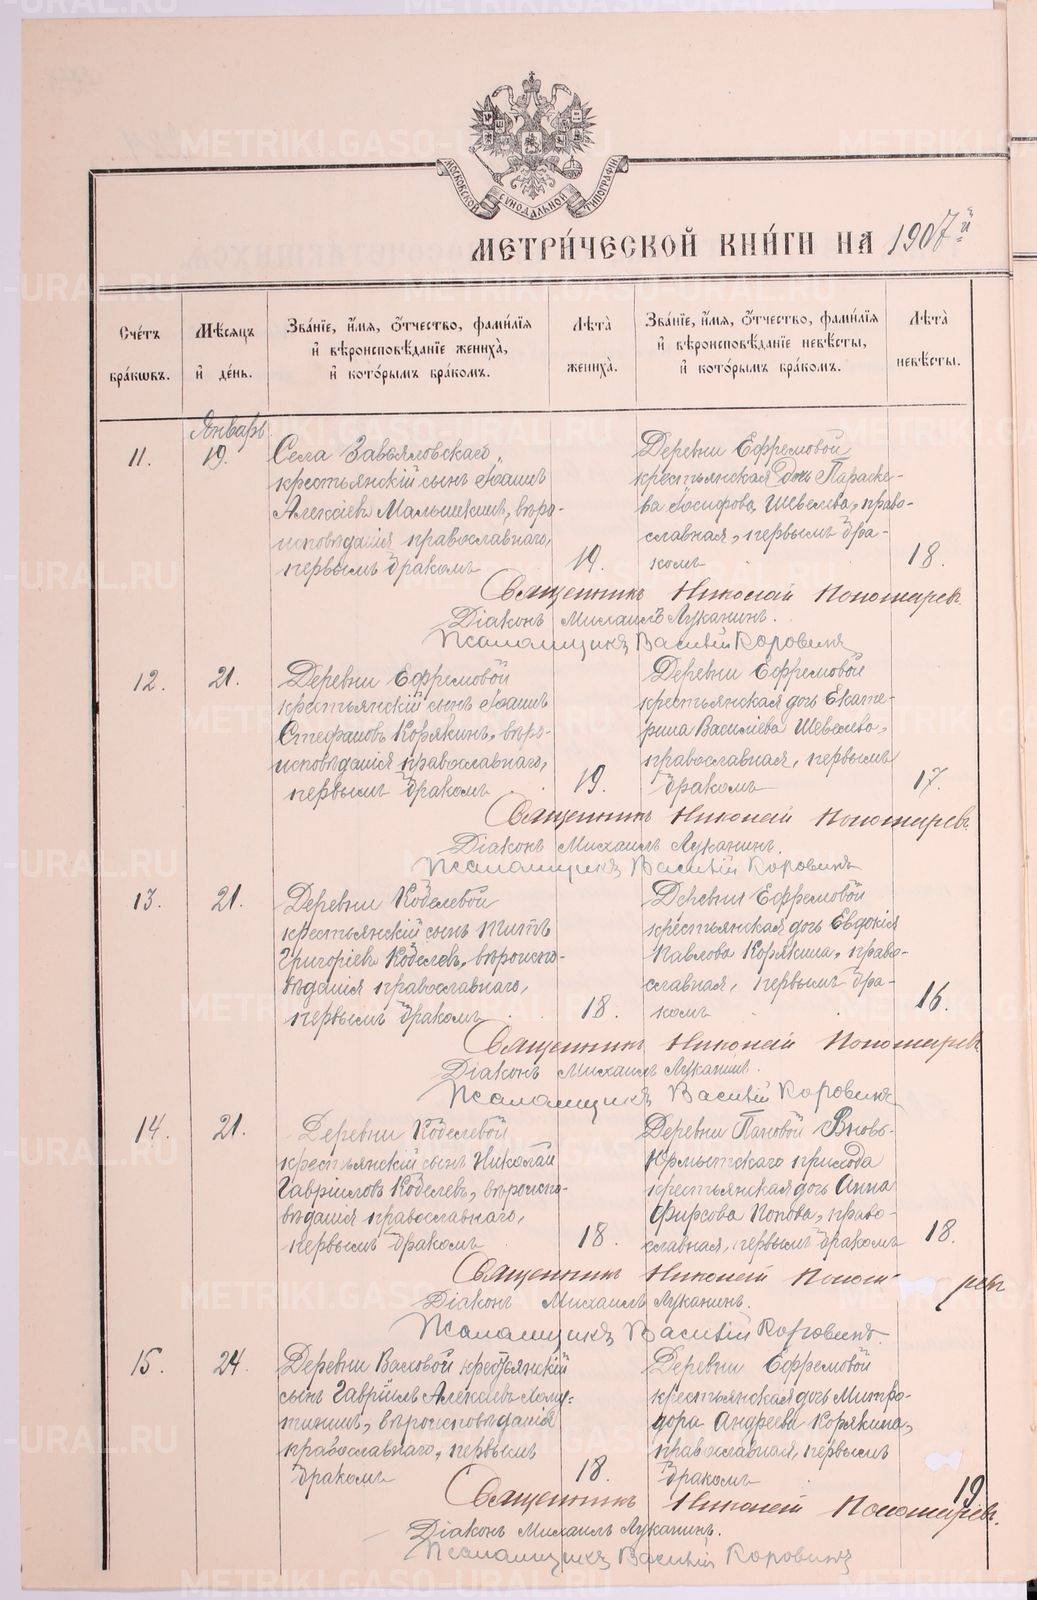 МОСКОВСКОЙ СѴНОДАЛЬНОЙ ТИПОГРАФИИ
МЕТРИ́ЧЕСКОЙ КНИ́ГИ НА 1907й
Сче́тъ бра́кѡвъ.
Мѣ́сяцъ и҆ де́нь.
Зва́нїе, и҆́мя, ѻ҆́тчество, фами́лїя и҆ вѣроисповѣ́данїе жениха̀, и҆ кото́рымъ бра́комъ.
Лѣ́та жениха̀.
Зва́нїе, и҆́мя, ѻ҆́тчество, фами́лїя и҆ вѣроисповѣ́данїе невѣ́сты, и҆ кото́рымъ бра́комъ.
Лѣ́та невѣ́сты.
Январь
11.
19.
Села Завьяловскаго,
крестьянскій сынъ Іоаннъ
Алексіевъ Малышкинъ, вѣро-
исповѣданія православнаго,
первымъ бракомъ
19.
Деревни Ефремовой
крестьянская дочь Параске-
ва Іосифова Шевелева, право-
славная, первымъ бра-
комъ
18.
Священникъ Николай Пономаревъ
Діаконъ Михаилъ Луканинъ.
Псаломщикъ Василій Коровинъ
12.
21.
Деревни Ефремовой
крестьянскій сынъ Іоаннъ
Стефановъ Корякинъ, вѣро-
исповѣданія православнаго,
первымъ бракомъ
19.
Деревни Ефремовой
крестьянская дочь Екате-
рина Василіева Шевелева,
православная, первымъ
бракомъ
17.
Священникъ Николай Пономаревъ
Діаконъ Михаилъ Луканинъ.
Псаломщикъ Василій Коровинъ
13.
21.
Деревни Кобелевой
крестьянскій сынъ Титъ
Григоріевъ Кобелевъ, вѣроиспо-
вѣданія православнаго,
первымъ бракомъ
18.
Деревни Ефремовой
крестьянская дочь Евдокія
Павлова Корякина, право-
славная, первымъ бра-
комъ
16.
Священникъ Николай Пономаревъ
Діаконъ Михаилъ Луканинъ.
Псаломщикъ Василій Коровинъ
14.
21.
Деревни Кобелевой
крестьянскій сынъ Николай
Гавріиловъ Кобелевъ, вѣроиспо-
вѣданія православнаго,
первымъ бракомъ
18.
Деревни Пановой Вновь-
Юрмытскаго прихода
крестьянская дочь Анна
Фирсова Попова, право-
славная, первымъ бракомъ
18.
Священникъ Николай Пономаревъ
Діаконъ Михаилъ Луканинъ.
Псаломщикъ Василій Коровинъ.
15.
24.
Деревни Васковой крестьянскій
сынъ Гавріилъ Алексіевъ Хому-
тининъ, вѣроисповѣданія
православнаго, первымъ
бракомъ
18.
Деревни Ефремовой
крестьянская дочь Митро-
дора Андреева Корякина,
православная, первымъ
бракомъ
19
Священникъ Николай Пономаревъ.
Діаконъ Михаилъ Луканинъ.
Псаломщикъ Василій Коровинъ
METRIKI.GASO-URAL.RU